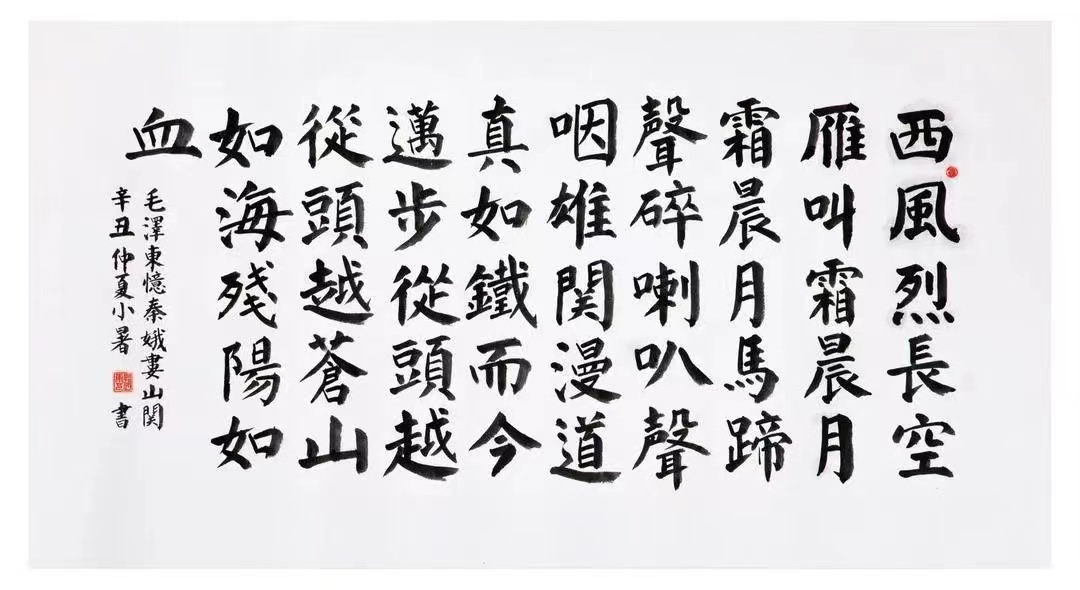 西風烈長空
雁叫霜晨月
霜晨月馬蹄
聲碎喇叭聲
咽雄関漫道
真如鐵而今
邁步從頭越
從頭越蒼山
如海殘陽如
血
毛澤東憶秦娥婁山関
辛丑仲夏小暑書